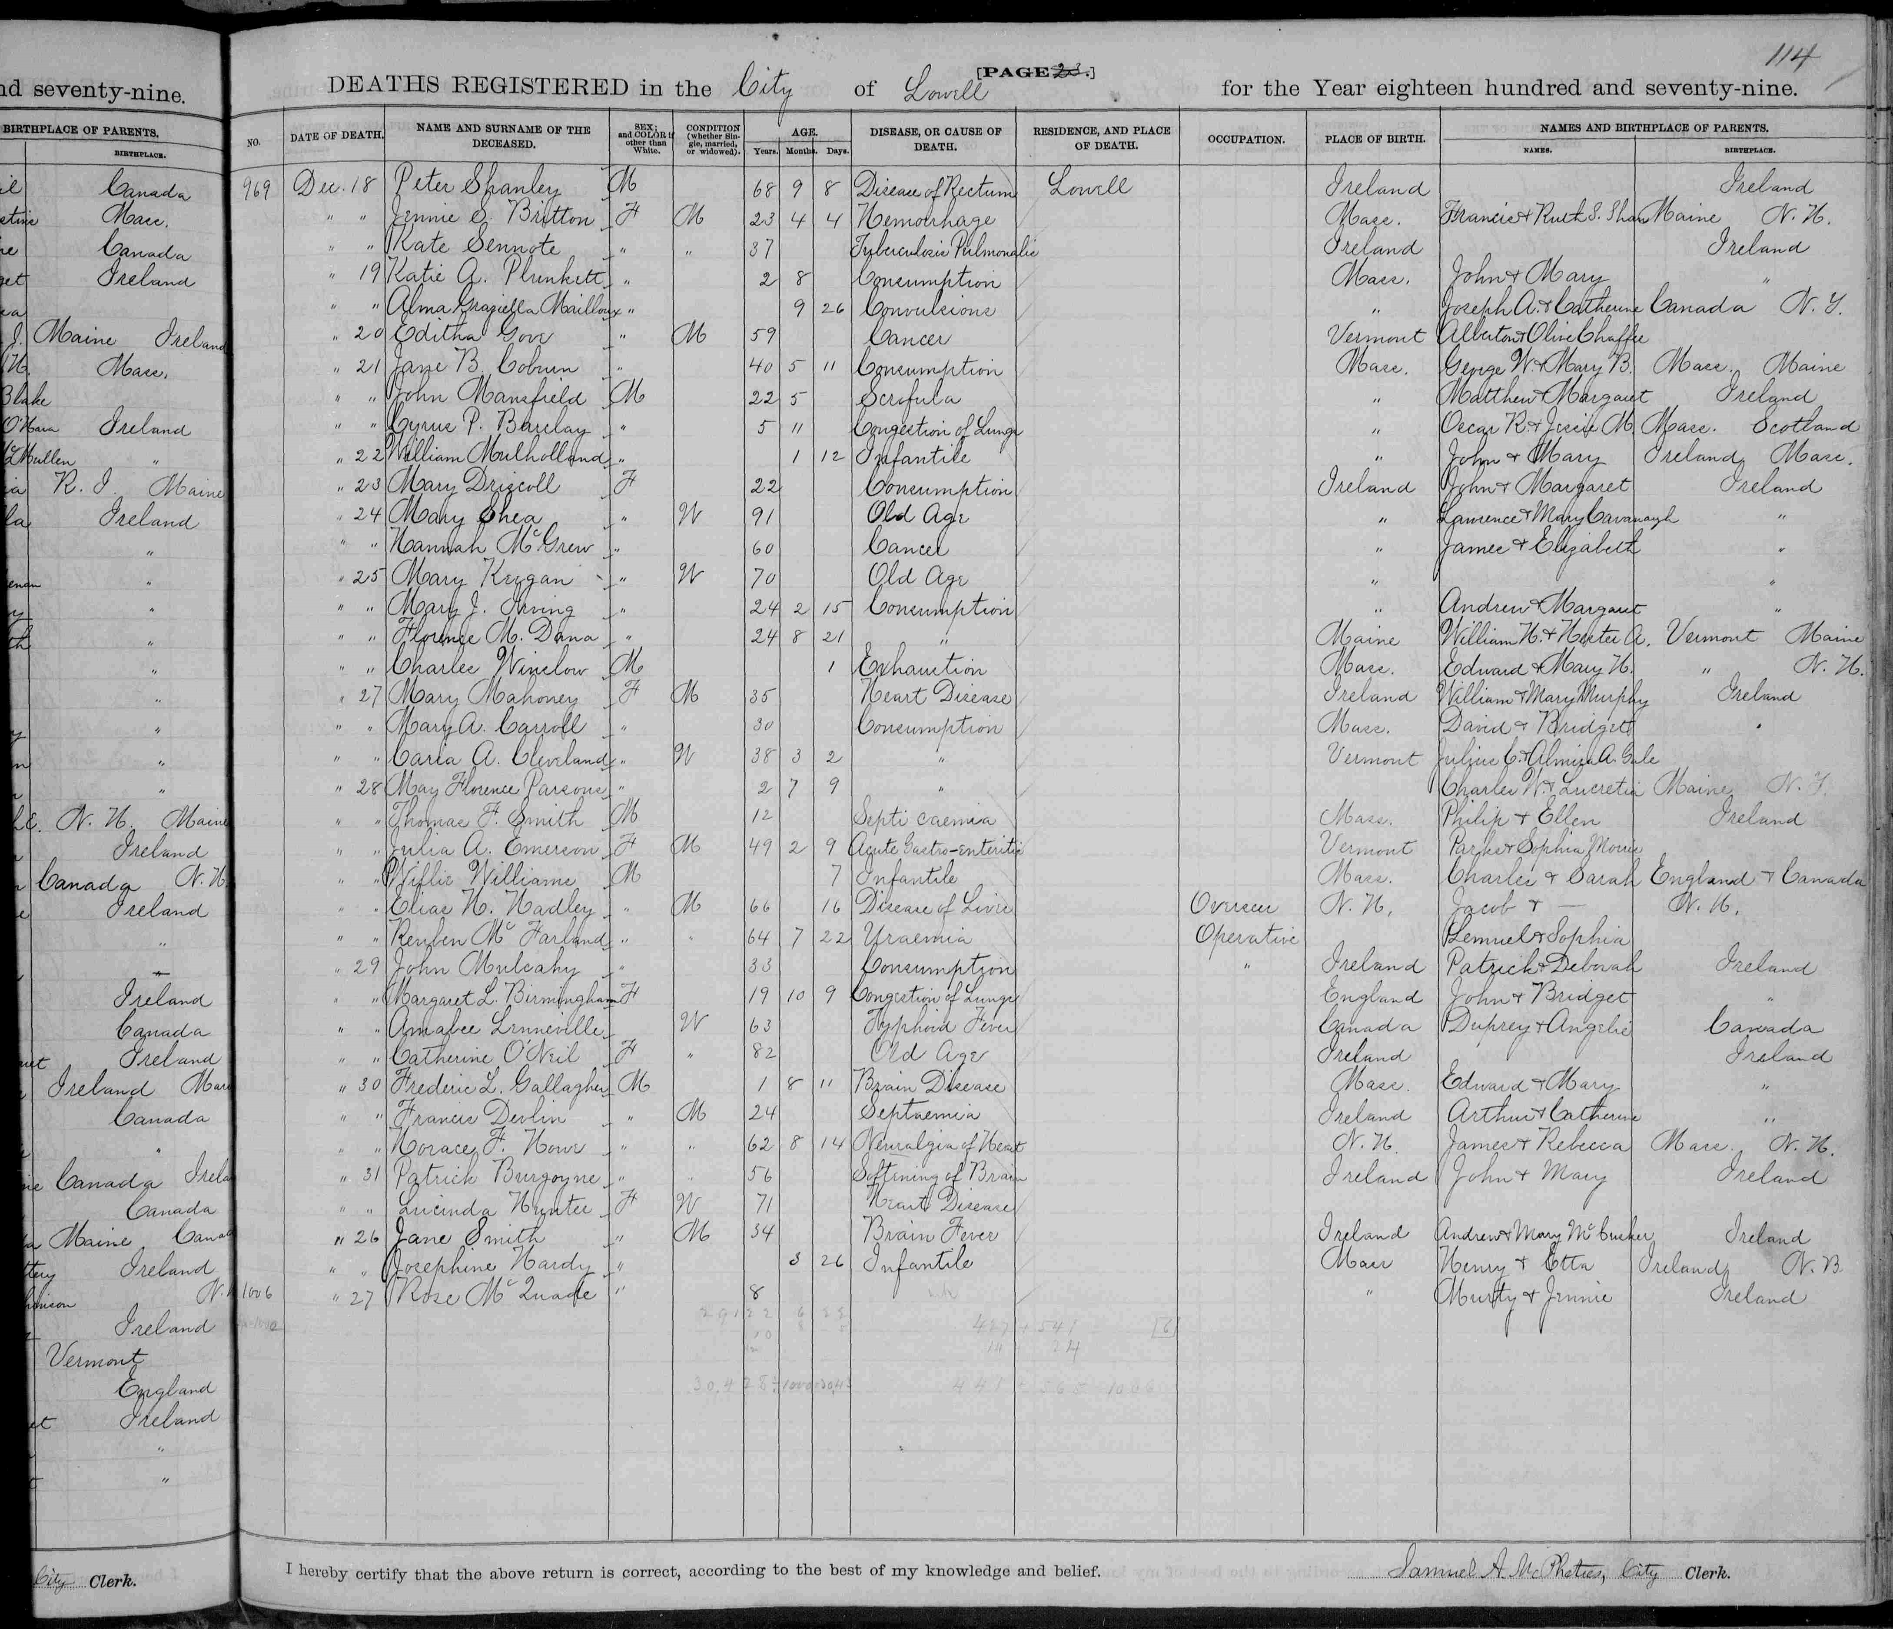 nd seventy-nine.
BIRTHPLACE OF PARENTS.
BIRTHPLACE.
Canada
Mass.
Canada
Ireland
Maine Ireland
Mass.
Blake
O'Hara Ireland
McMullen "
R. I. Maine
Ireland
"
"
"
"
"
"
"
"
"
N. H. Maine
Ireland
Canada N. H.
Ireland
"
Ireland
Canada
Ireland
Ireland Mass
Canada
"
Canada Irela
Canada
Maine Canad
Ireland
N. H
Ireland
Vermont
England
Ireland
"
"
City Clerk.
114
[PAGE 23.]
DEATHS REGISTERED in the City of Lowell for the Year eighteen hundred and seventy-nine.
NO. DATE OF DEATH. NAME AND SURNAME OF THE DECEASED. SEX; and COLOR if other than White. CONDITION (whether Single, married, or widowed). AGE. Years. Months. Days. DISEASE, OR CAUSE OF DEATH. RESIDENCE, AND PLACE OF DEATH. OCCUPATION. PLACE OF BIRTH. NAMES AND BIRTHPLACE OF PARENTS. NAMES. BIRTHPLACE.
969 Dec. 18 Peter Shanley M 68 9 8 Disease of Rectum Lowell Ireland Ireland
" " Jennie S. Britton F M 23 4 4 Hemorrhage Mass. Francis & Ruth S. Shaw Maine N. H.
" " Kate Sennote " " 37 Tuberculosis Pulmonalis Ireland Ireland
" 19 Katie A. Plunkett " 2 8 Consumption Mass. John & Mary "
" " Alma Graziella Mailloux " 9 26 Convulsions " Joseph A. & Catherine Canada N. Y.
" 20 Editha Gove " M 59 Cancer Vermont Alberton & Olive Chaffee
" 21 Jane B. Coburn " 40 5 11 Consumption Mass. George W. & Mary B. Mass. Maine
" " John Mansfield M 22 5 Scrofula " Matthew & Margaret Ireland
" " Cyrus P. Barclay " 5 11 Congestion of Lungs " Oscar R. & Jessie M. Mass. Scotland
" 22 William Mulholland " 1 12 Infantile " John & Mary Ireland Mass.
" 23 Mary Driscoll F 22 Consumption Ireland John & Margaret Ireland
" 24 Mary Shea " W 91 Old Age " Lawrence & Mary Cavanagh "
" " Hannah McGrew " 60 Cancer " James & Elizabeth "
" 25 Mary Keegan " W 70 Old Age " "
" " Mary J. Irving " 24 2 15 Consumption " Andrew & Margaret "
" " Florence M. Dana " 24 8 21 " Maine William H. & Hester A. Vermont Maine
" " Charles Winslow M 1 Exhaustion Mass. Edward & Mary H. " N. H.
" 27 Mary Mahoney F M 35 Heart Disease Ireland William & Mary Murphy Ireland
" " Mary A. Carroll " 30 Consumption Mass. David & Bridget "
" " Caria A. Cleveland " W 38 3 2 " Vermont Julius C. & Almira A. Gale
" 28 May Florence Parsons " 2 7 9 " Charles W. & Lucretia Maine N. Y.
" " Thomas F. Smith M 12 Septicaemia Mass. Philip & Ellen Ireland
" " Julia A. Emerson F M 49 2 9 Acute Gastro-enteritis Vermont Parks & Sophia Morse
" " Willie Williams M 7 Infantile Mass. Charles & Sarah England & Canada
" " Elias H. Hadley " M 66 16 Disease of Liver Overseer N. H. Jacob & — N. H.
" " Reuben McFarland " " 64 7 22 Uraemia Operative Lemuel & Sophia
" 29 John Mulcahy " 33 Consumption " Ireland Patrick & Deborah Ireland
" " Margaret L. Birmingham F 19 10 9 Congestion of Lungs England John & Bridget "
" " Amablee Lenneville W 63 Typhoid Fever Canada Duprey & Angelie Canada
" " Catherine O'Neil F " 82 Old Age Ireland Ireland
" 30 Frederic L. Gallagher M 1 8 11 Brain Disease Mass. Edward & Mary "
" " Francis Devlin " M 24 Septaemia Ireland Arthur & Catherine "
" " Horace F. Howe " " 62 8 14 Neuralgia of Heart N. H. James & Rebecca Mass. N. H.
" 31 Patrick Burgoyne " " 56 Softening of Brain Ireland John & Mary Ireland
" " Lucinda Hunter F W 71 Heart Disease
" 26 Jane Smith " M 34 Brain Fever Ireland Andrew & Mary McCusker Ireland
" " Josephine Hardy " 3 26 Infantile Mass Henry & Etta Ireland N. B
1006 " 27 Rose McQuade " 8 " Murty & Jennie Ireland
I hereby certify that the above return is correct, according to the best of my knowledge and belief. Samuel A. McPhetres, City Clerk.